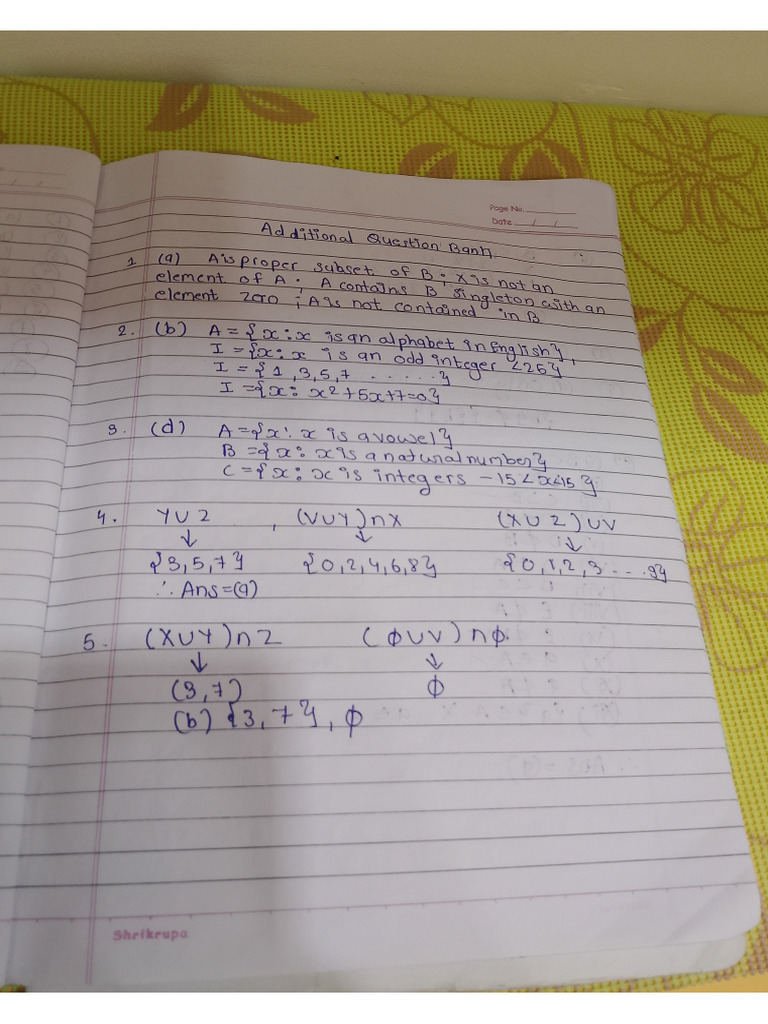 Page No.
Date / /
Additional Question Bank
1 (a) A is proper subset of B ; x is not an
element of A ; A contains B singleton with an
element zero ; A is not contained in B
2. (b) A = {x : x is an alphabet in English},
I = {x : x is an odd integer <25}
I = {1, 3, 5, 7 ......}
I = {x : x²+5x+7=0}
3. (d) A = {x : x is a vowel}
B = {x : x is a natural number}
C = {x : x is integers -15<x<15}
4. YUZ , (VUY)∩X (XUZ)UV
↓ ↓ ↓
{3,5,7} {0,2,4,6,8} {0,1,2,3...9}
∴ Ans = (a)
5. (XUY)∩Z (ϕUV)∩ϕ.
↓ ↓
(3,7) ϕ
(b) {3,7}, ϕ
Shrikrupa